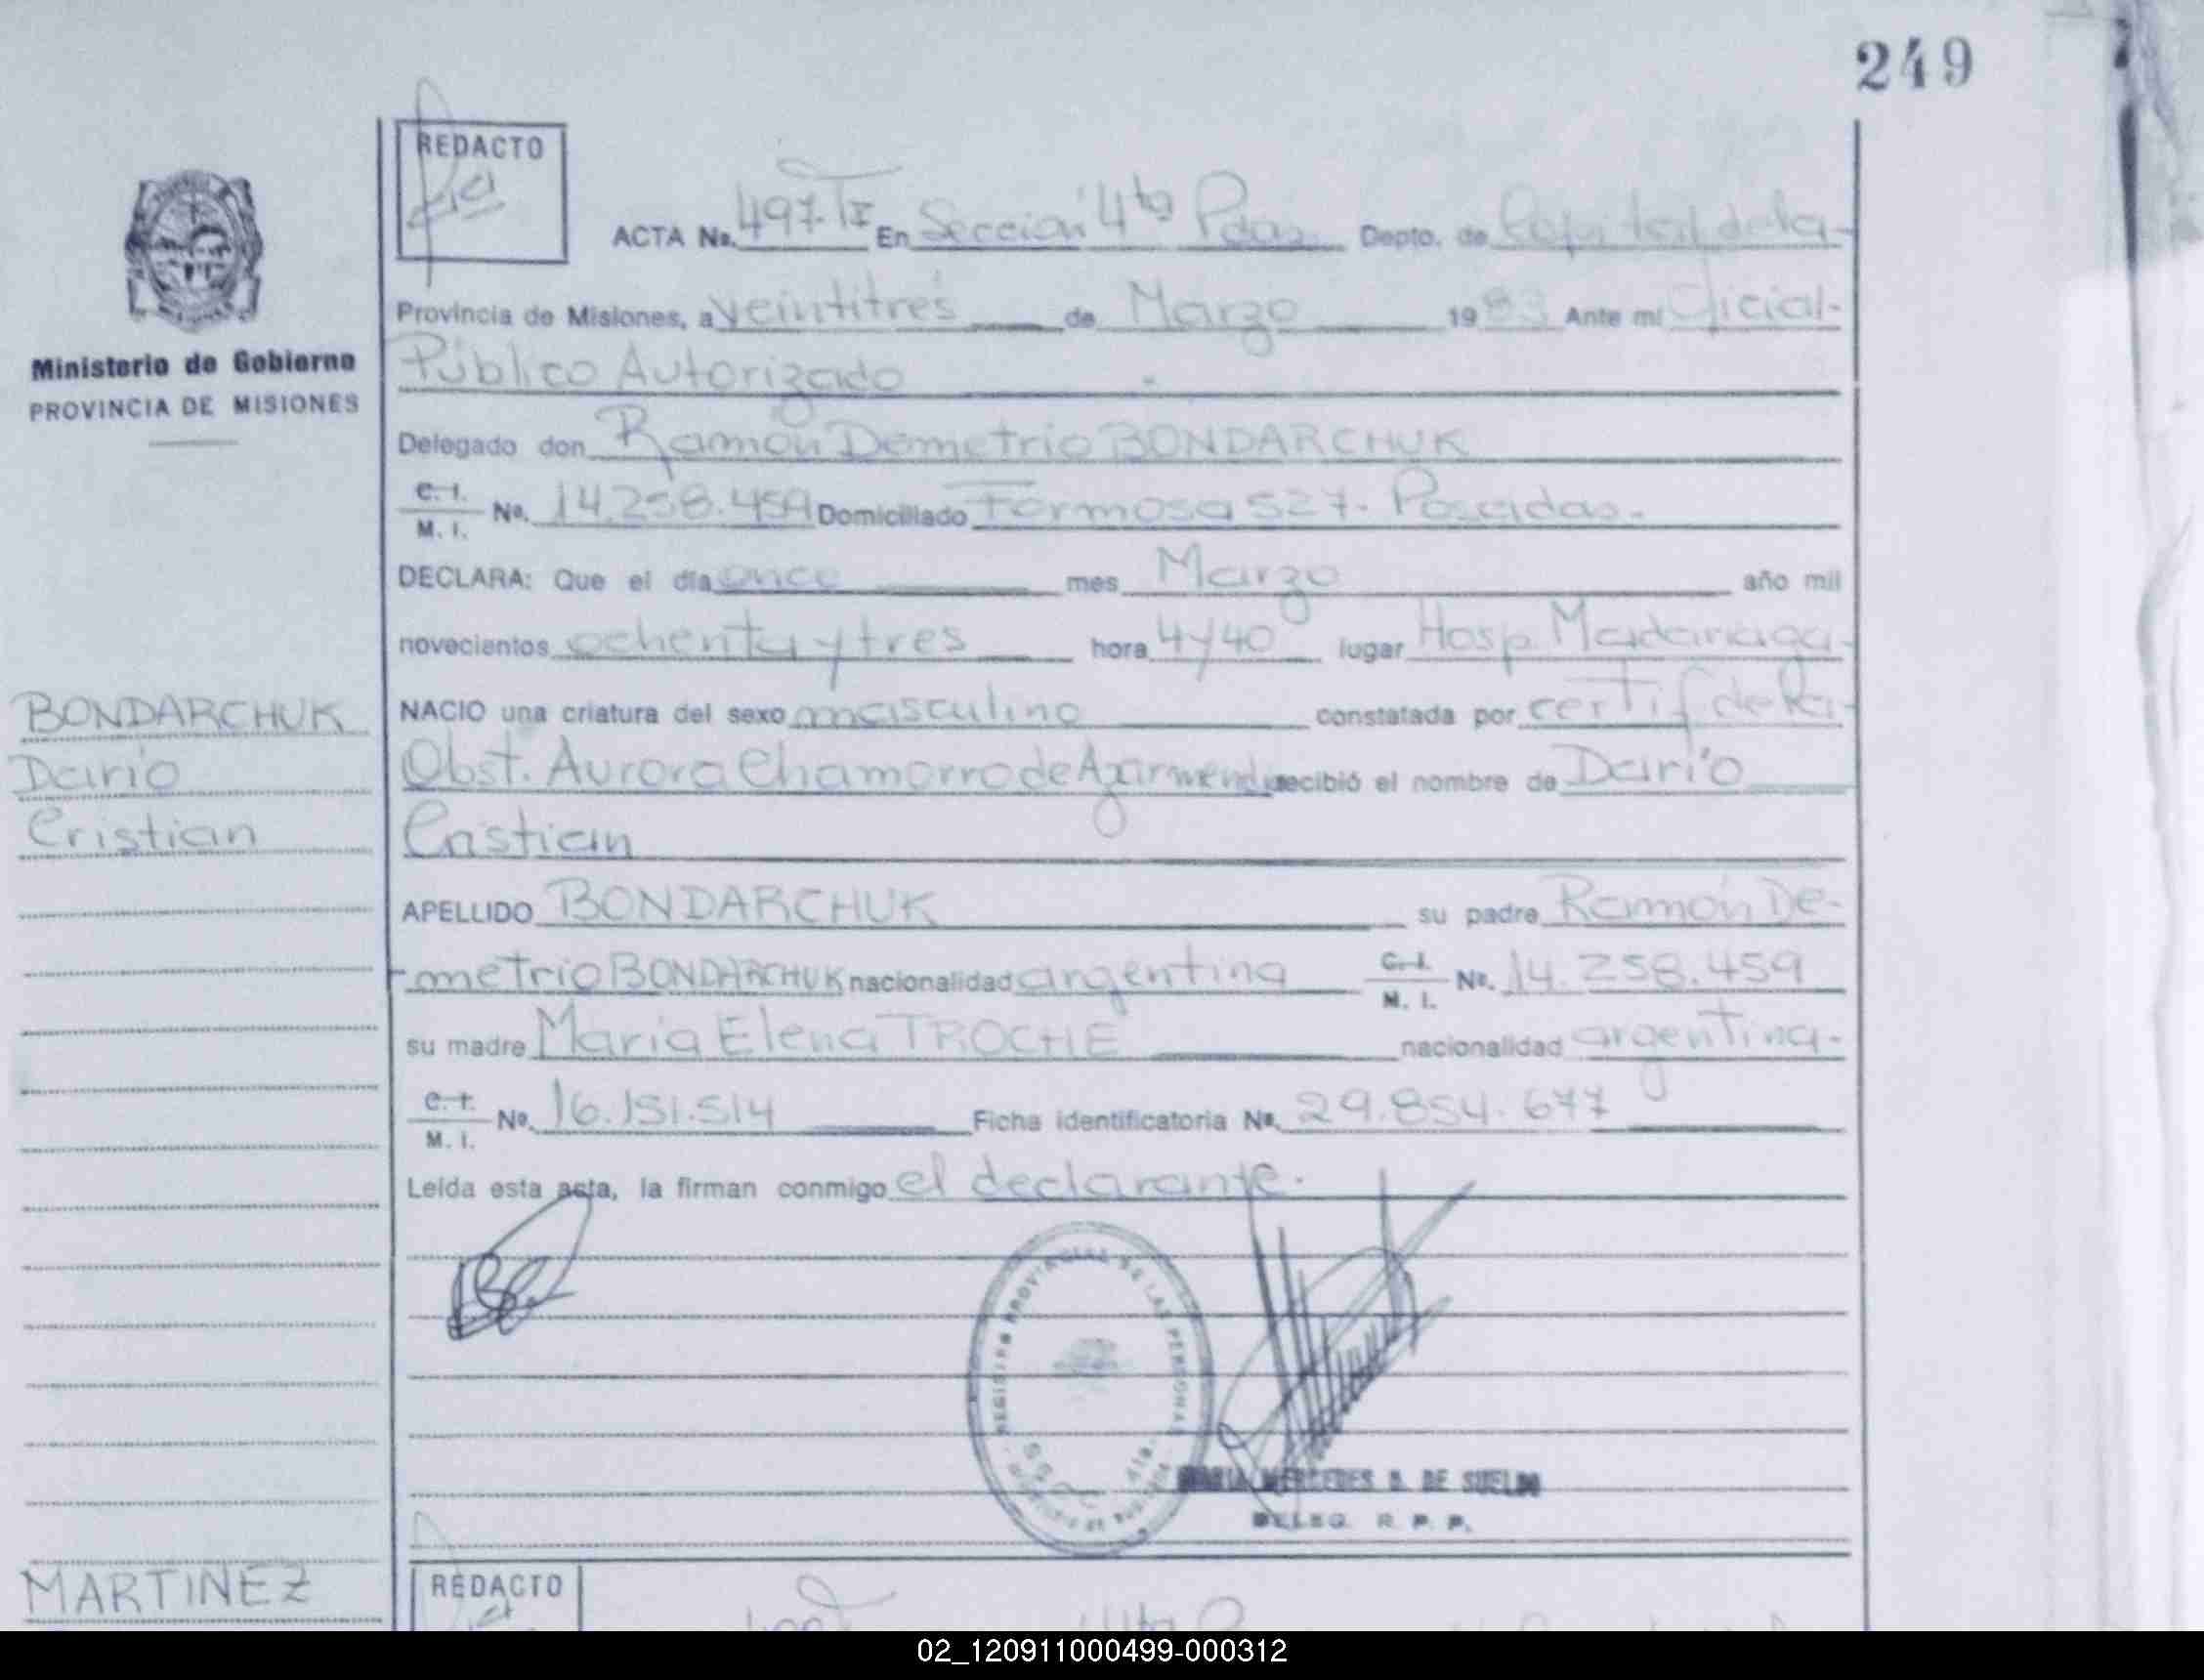 249
REDACTO
ACTA No. 497-TI En Sección 4ta Pdas Depto. de Capital de la-
Provincia de Misiones, a veintitrés de Marzo 1983 Ante mí Oficial-
Ministerio de Gobierno
PROVINCIA DE MISIONES
Público Autorizado
Delegado don Ramón Demetrio BONDARCHUK
C. I. M. I. No. 14.258.459 Domiciliado Formosa 527- Posadas.
DECLARA: Que el día once mes Marzo año mil
novecientos ochenta y tres hora 4/40 lugar Hosp. Madariaga-
BONDARCHUK
Darío
Cristian
NACIO una criatura del sexo masculino constatada por certif de la-
Obst. Aurora Chamorro de recibió el nombre de Darío
Cristian
APELLIDO BONDARCHUK su padre Ramón De-
-metrio BONDARCHUK nacionalidad argentina C. I. M. I. No. 14.258.459
su madre María Elena TROCHE nacionalidad argentina-
C. I. M. I. No. 16.151.514 Ficha identificatoria No. 29.854.677
Leída esta acta, la firman conmigo el declarante.
REGISTRO PROVINCIAL DE LAS PERSONAS
MARIA MERCEDES B. DE SUELDO
DELEG. R. P. P.
MARTINEZ
REDACTO
02_120911000499-000312